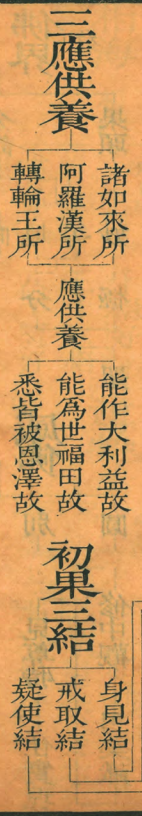 三應供養
諸如來所
阿羅漢所
轉輪王所
應供養
能作大利益故
能為世福田故
悉皆被恩澤故
初果三結
身見結
戒取結
疑使結